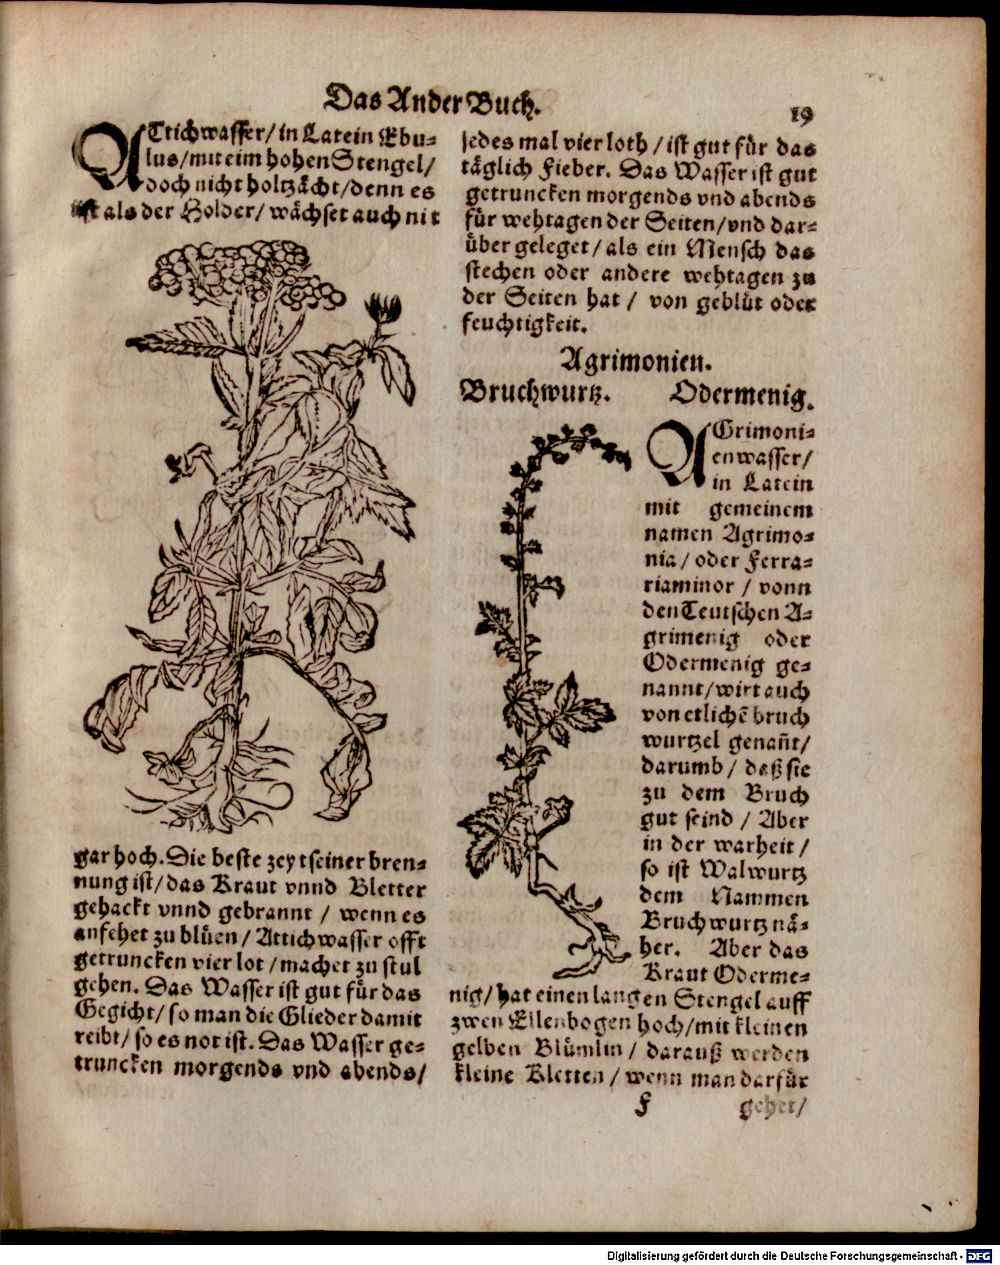 Das Ander Buch.
19
ATtichwasser/ in Latein Ebu⸗
lus/ mit eim hohen Stengel/
doch nicht holtzächt/ denn es
ist als der Holder/ wächset auch nit
gar hoch. Die beste zeyt seiner bren⸗
nung ist/ das Kraut vnnd Bletter
gehackt vnnd gebrannt / wenn es
anfehet zu blüen/ Attichwasser offt
getruncken vier lot / machet zu stul
gehen. Das Wasser ist gut für das
Gegicht/ so man die Glieder damit
reibt/ so es not ist. Das Wasser ge⸗
truncken morgends vnd abends/
jedes mal vier loth / ist gut für das
täglich Fieber. Das Wasser ist gut
getruncken morgends vnd abends
für wehtagen der Seiten/ vnd dar⸗
über geleget/ als ein Mensch das
stechen oder andere wehtagen zu
der Seiten hat / von geblüt oder
feuchtigkeit.
Agrimonien.
Bruchwurtz. Odermenig.
AGrimoni⸗
enwasser/
in Latein
mit gemeinem
namen Agrimo⸗
nia/ oder Ferra⸗
riaminor / vonn
den Teutschen A⸗
grimenig oder
Odermenig ge⸗
nannt/ wirt auch
von etlichē bruch
wurtzel genañt/
darumb / daß sie
zu dem Bruch
gut seind / Aber
in der warheit /
so ist Walwurtz
dem Nammen
Bruchwurtz nä⸗
her. Aber das
Kraut Oderme⸗
nig/ hat einen langen Stengel auff
zwen Ellenbogen hoch/ mit kleinen
gelben Blümlin / darauß werden
kleine Kletten / wenn man darfür
F
gehet/
Digitalisierung gefördert durch die Deutsche Forschungsgemeinschaft - DFG